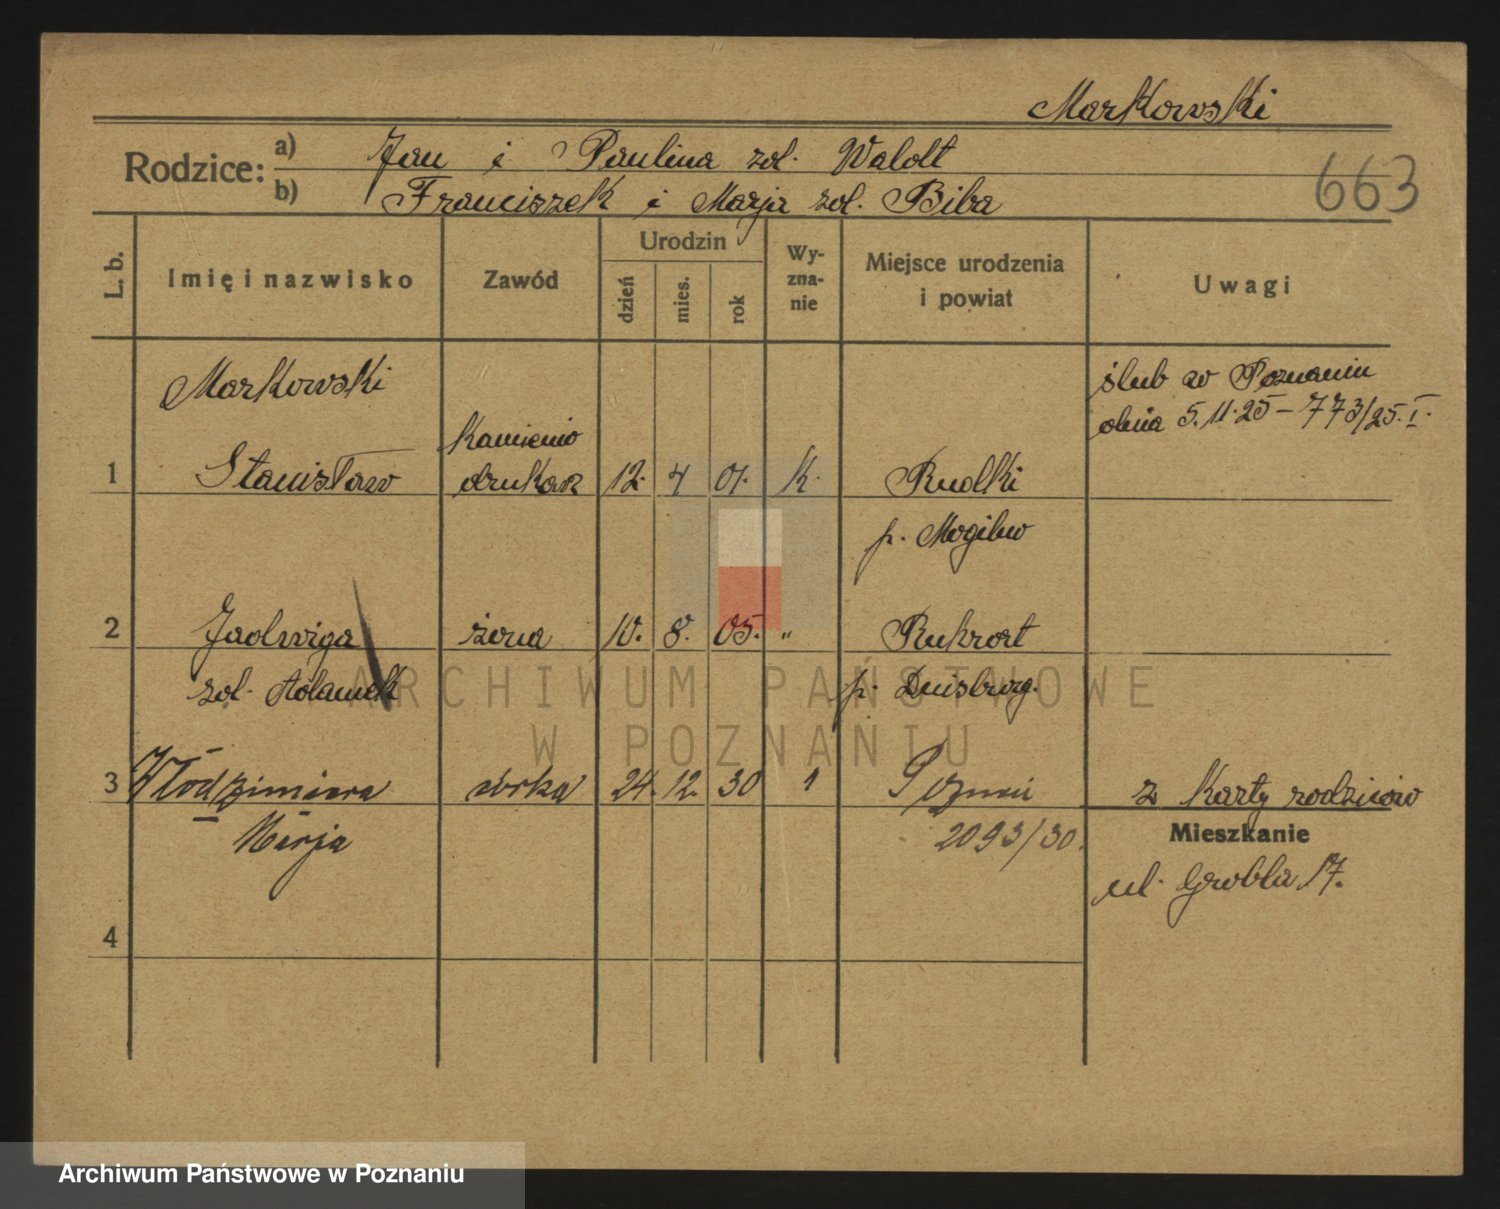 Markowski
Rodzice: a) Jan i Paulina zd. Waldt
b) Franciszek i Marja zd. Biba
663
L. b. Imię i nazwisko Zawód Urodzin dzień mies. rok Wy-zna-nie Miejsce urodzenia i powiat Uwagi
Markowski
ślub w Poznaniu
dnia 5.11.25 – 773/25. I.
kamienio
1 Stanisław drukarz 12. 4 01. k. Rudki
p. Mogilno
2 Jadwiga żona 10. 8. 05. " Ruhrort
zd. Adamek p. Duisburg.
3 Włodzimiera córka 24. 12. 30 Poznań z karty rodziców
Marja 2093/30.
Mieszkanie
ul. Grobla 17.
4
ARCHIWUM PAŃSTWOWE
W POZNANIU
Archiwum Państwowe w Poznaniu